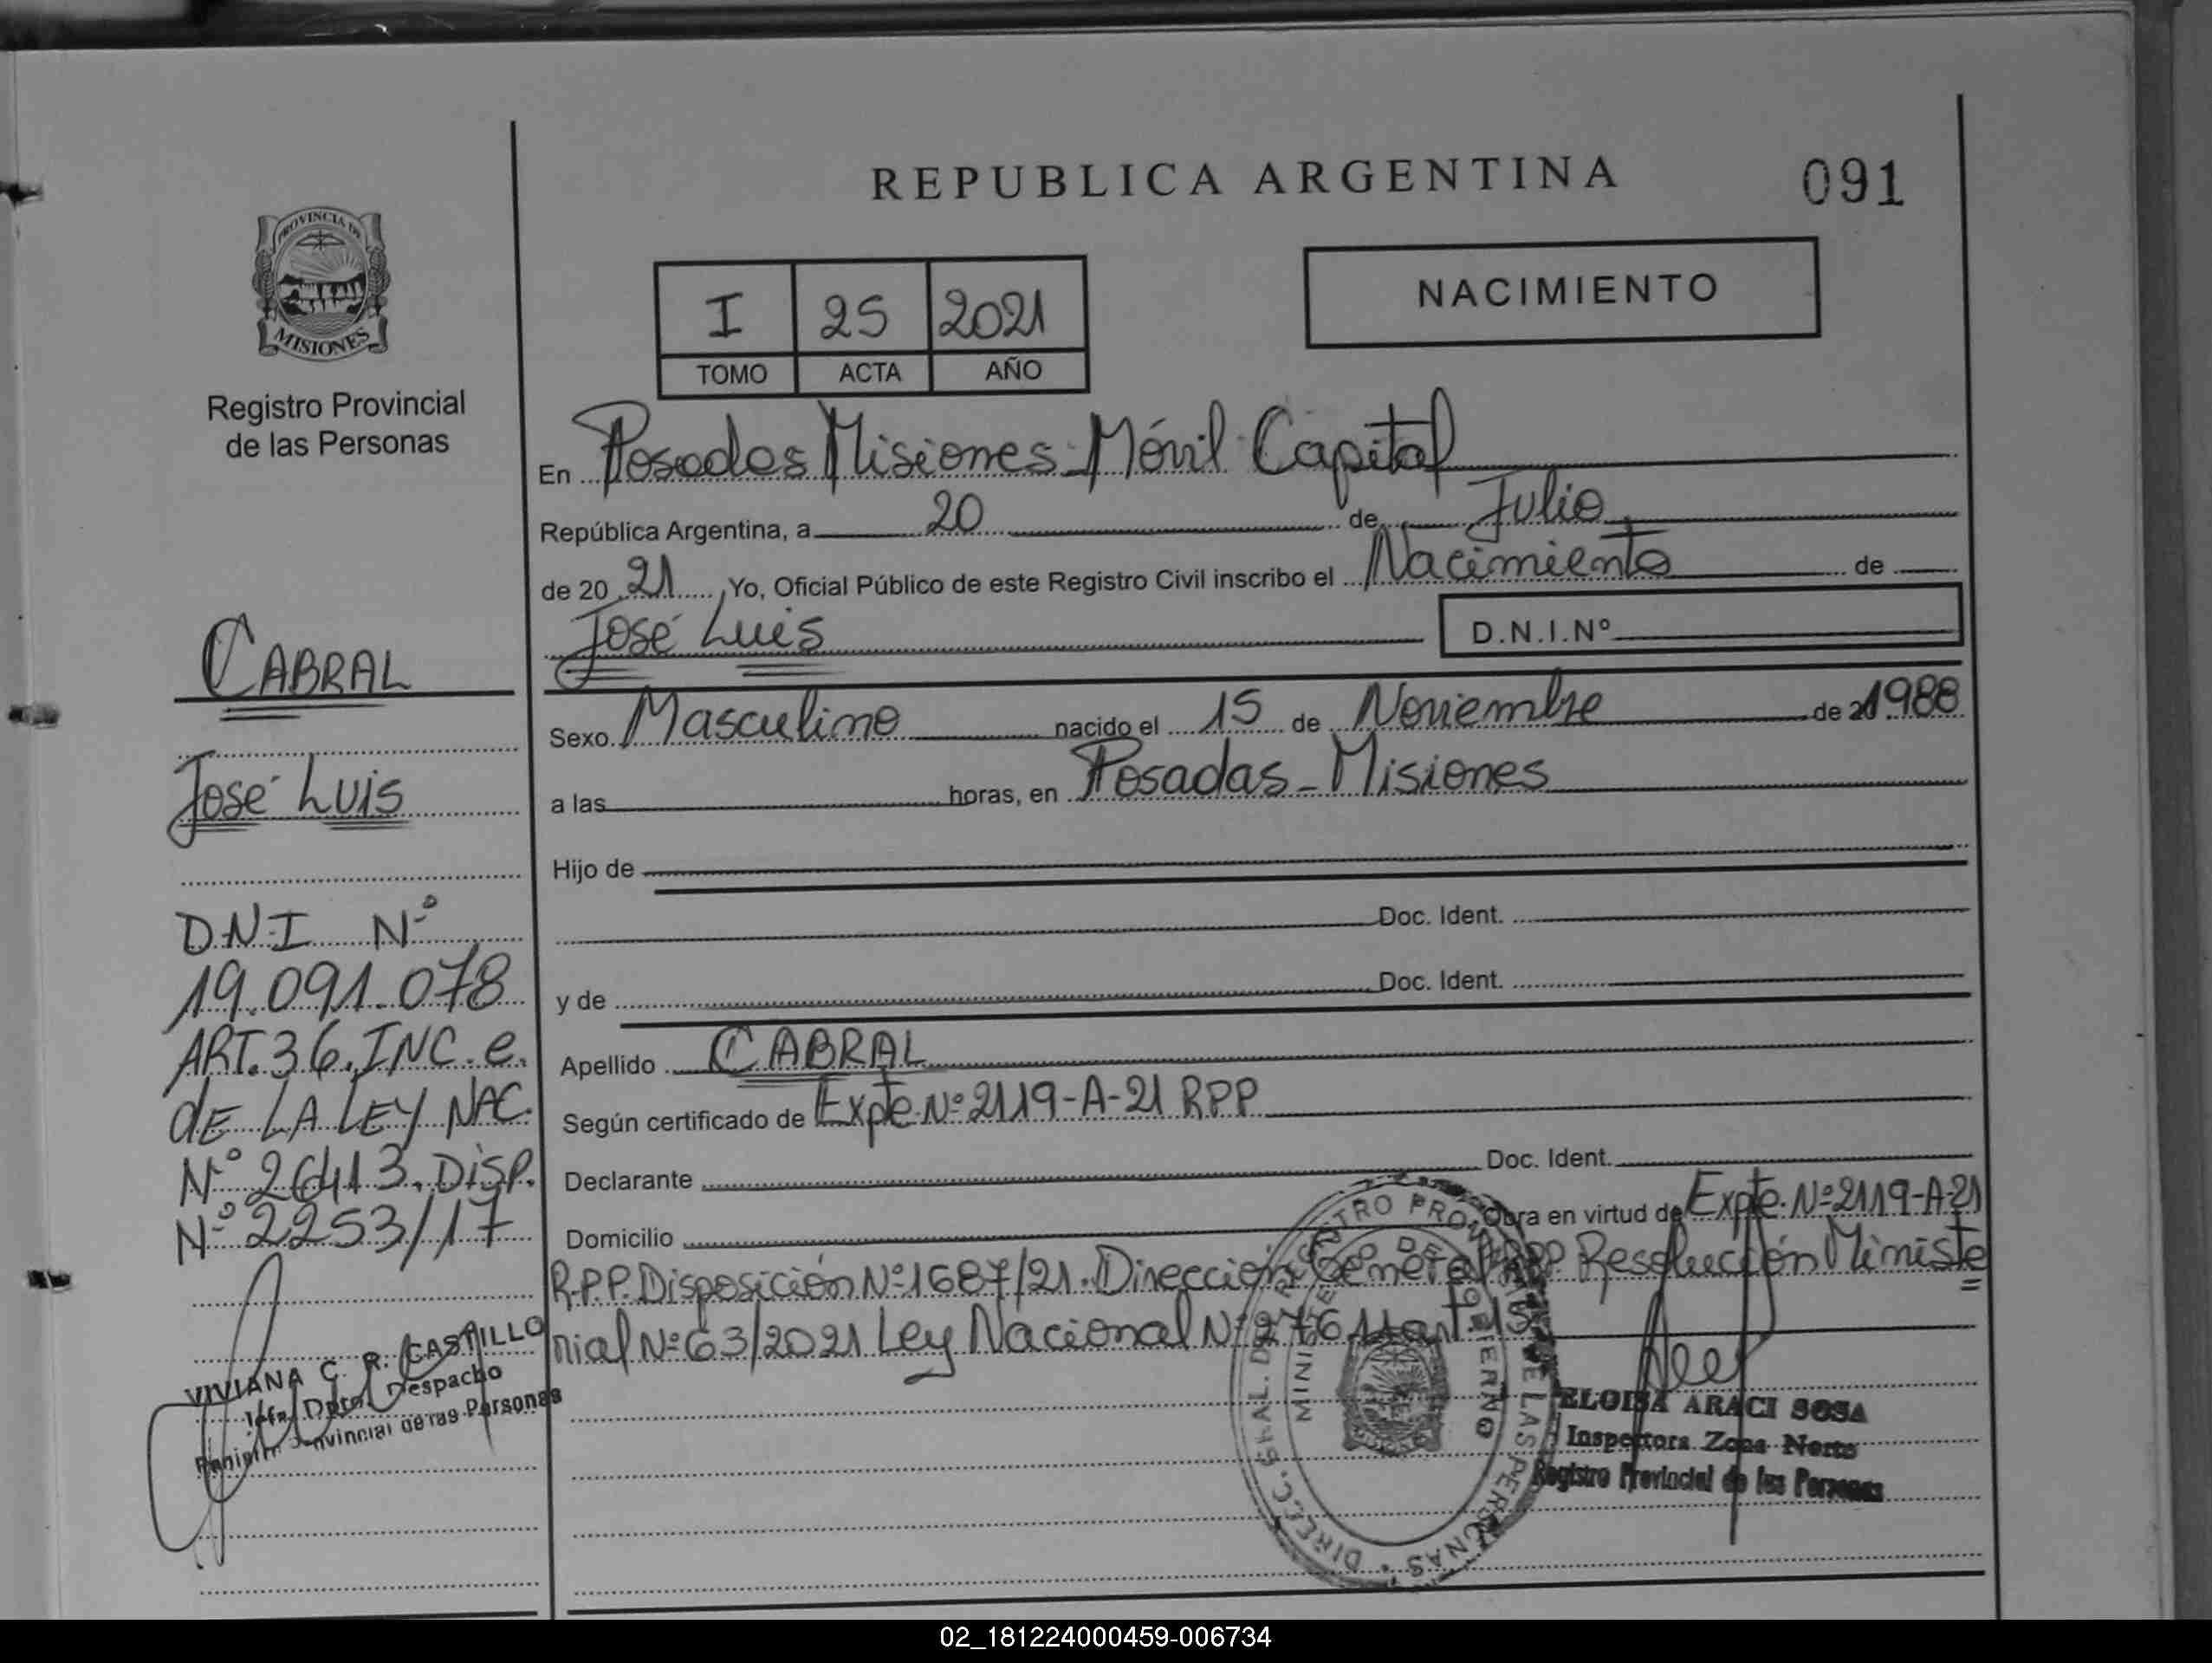 REPUBLICA ARGENTINA
091
PROVINCIA DE
MISIONES
Registro Provincial
de las Personas
I 25 2021
TOMO ACTA AÑO
NACIMIENTO
En Posadas Misiones - Móvil Capital
República Argentina, a 20 de Julio
de 20 21 Yo, Oficial Público de este Registro Civil inscribo el Nacimiento de
José Luis D.N.I.Nº
Sexo Masculino nacido el 15 de Noviembre de 1988
a las horas, en Posadas - Misiones
Hijo de
Doc. Ident.
y de Doc. Ident.
Apellido CABRAL
Según certificado de Expte. Nº 2119-A-21 RPP
Declarante Doc. Ident.
Domicilio Obra en virtud de Expte. Nº 2119-A-21
R.P.P. Disposición Nº 1687/21. Dirección General RPP Resolución Ministe
rial Nº 63/2021 Ley Nacional Nº 27611 art. 15
CABRAL
José Luis
D.N.I Nº
19.091.078
ART. 36, INC. e.
dE LA LEY NAC.
Nº 26413. DISP.
Nº 2253/17
VIVIANA C. R. CASTILLO
Jefa Dpto. Despacho
Provincial de las Personas
DIREC. GRAL. DEL REGISTRO PROV. DE LAS PERSONAS
MINISTERIO DE GOBIERNO
ELOISA ARACI SOSA
Inspectora Zona Norte
Registro Provincial de las Personas
02_181224000459-006734